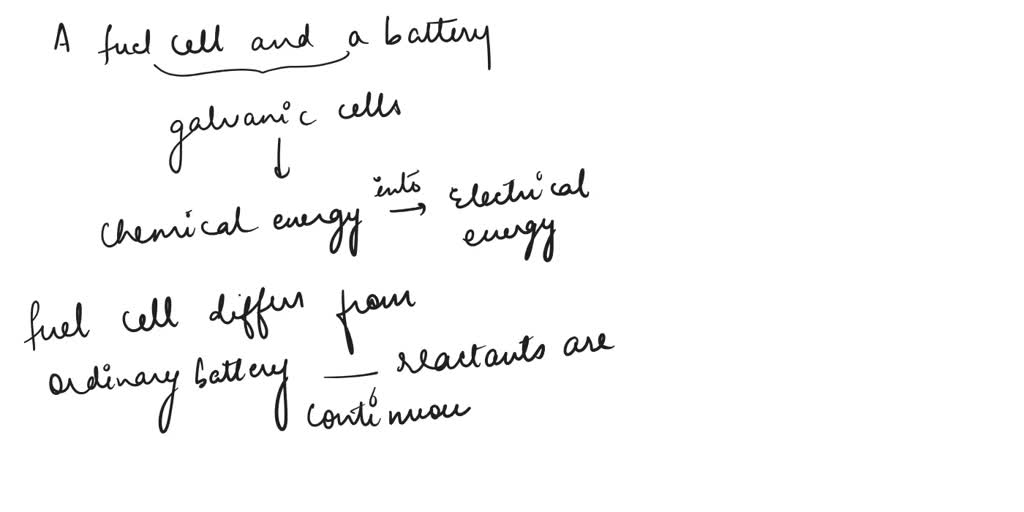 A fuel cell and a battery
galvanic cells
chemical energy into → Electrical
energy
fuel cell differs from
ordinary battery — reactants are
continuou